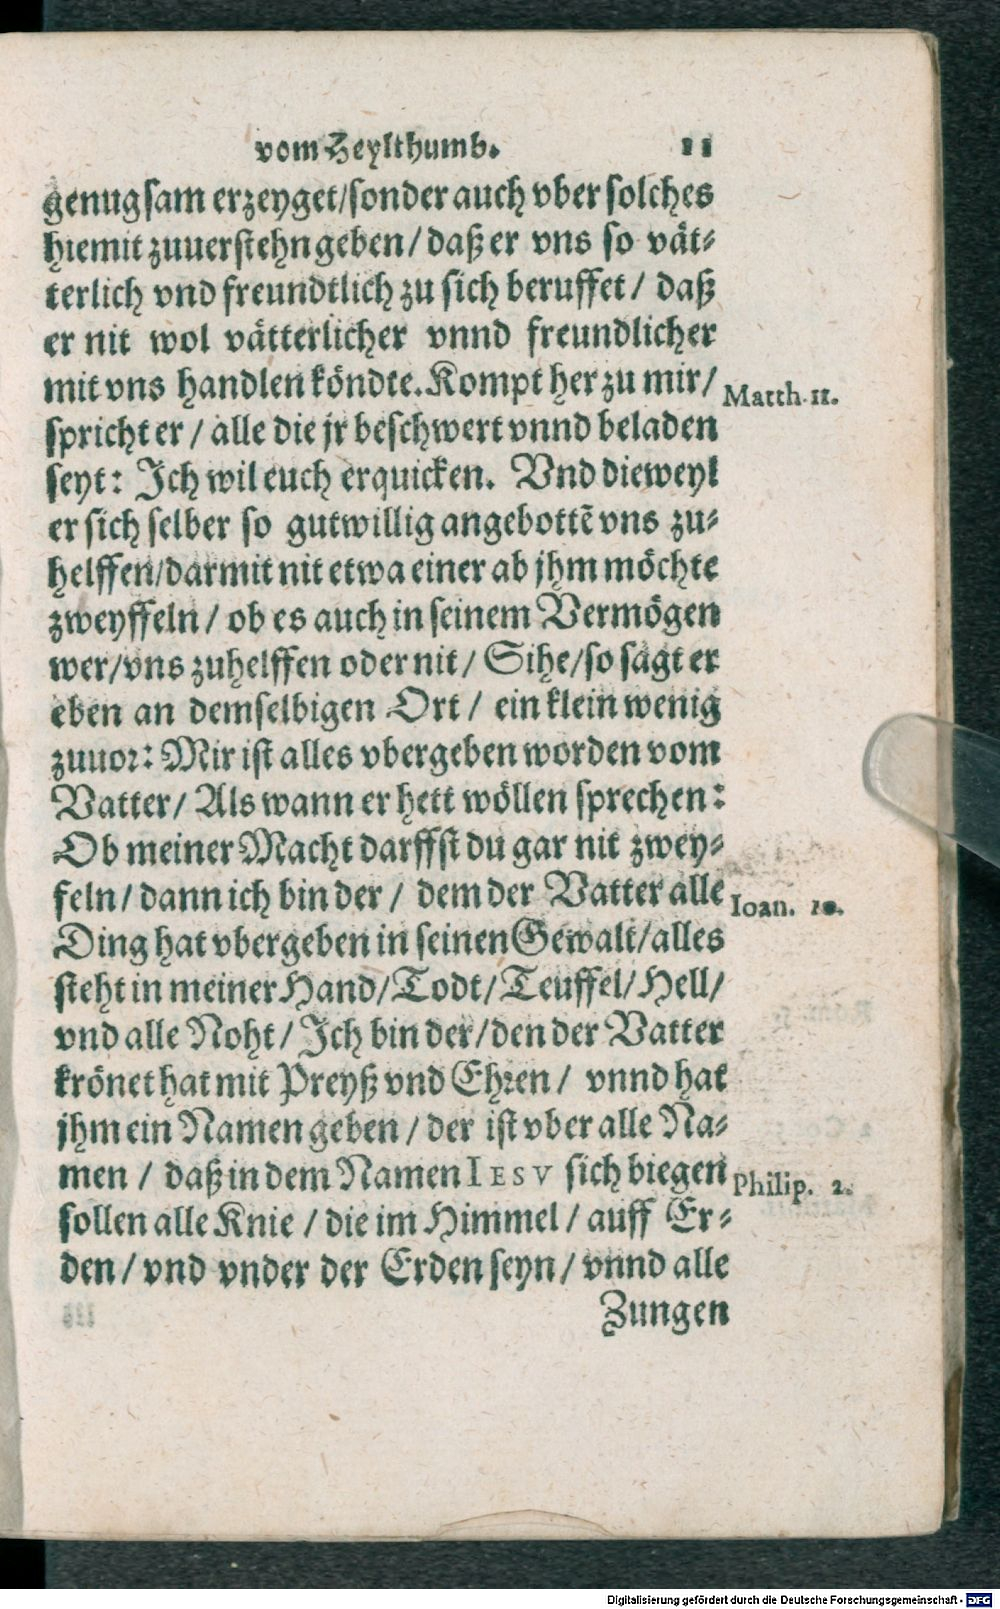 vom Heylthumb. 11
genugsam erzeyget/sonder auch vber solches
hiemit zuuerstehn geben/ daß er vns so vät-
terlich vnd freundtlich zu sich beruffet/ daß
er nit wol vätterlicher vnnd freundlicher
mit vns handlen köndte. Kompt her zu mir/ Matth. 11.
spricht er/ alle die jr beschwert vnnd beladen
seyt: Ich wil euch erquicken. Vnd dieweyl
er sich selber so gutwillig angebottē vns zu-
helffen/darmit nit etwa einer ab jhm möchte
zweyffeln/ ob es auch in seinem Vermögen
wer/vns zuhelffen oder nit/ Sihe/so sagt er
eben an demselbigen Ort/ ein klein wenig
zuuor: Mir ist alles vbergeben worden vom
Vatter/ Als wann er hett wöllen sprechen:
Ob meiner Macht darffst du gar nit zwey-
feln/ dann ich bin der/ dem der Vatter alle Ioan. 10.
Ding hat vbergeben in seinen Gewalt/alles
steht in meiner Hand/Todt/Teuffel/Hell/
vnd alle Noht/ Ich bin der/den der Vatter
krönet hat mit Preyß vnd Ehren/ vnnd hat
jhm ein Namen geben/ der ist vber alle Na-
men/ daß in dem Namen IESV sich biegen Philip. 2.
sollen alle Knie/ die im Himmel/ auff Er-
den/ vnd vnder der Erden seyn/ vnnd alle
Zungen
Digitalisierung gefördert durch die Deutsche Forschungsgemeinschaft - DFG